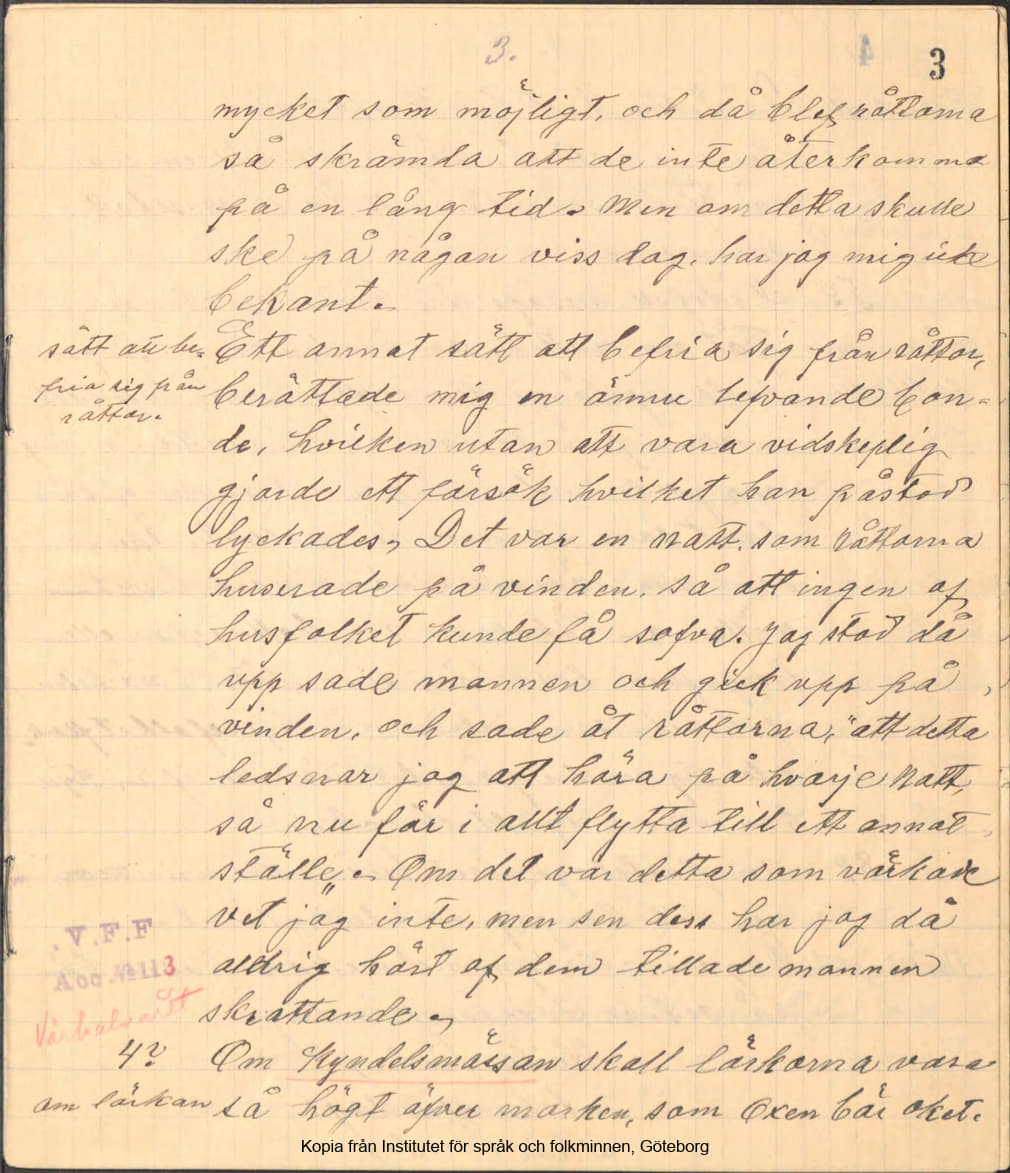 3.
3
mycket som möjligt, och då blef råttorna
så skrämda att de inte återkomma
på en lång tid. Men om detta skulle
ske på någon viss dag, har jag mig icke
bekant.
sätt att be-
fria sig från
råttor.
Ett annat sätt att befria sig från råttor,
berättade mig en ännu lefvande bon-
de, hvilken utan att vara vidskeplig
gjorde ett försök hvilket han påstod
lyckades, Det var en natt, som råttorna
huserade på vinden, så att ingen af
husfolket kunde få sofva. Jag stod då
upp sade mannen och gick upp på
vinden, och sade åt råttorna, "att detta
ledsnar jag att höra på hvarje natt,
så nu får i allt flytta till ett annat
ställe". Om det var detta som värkade
vet jag inte, men sen dess har jag då
aldrig hört af dem tillade mannen
skrattande.
V.F.F
Acc. № 113
4?
om lärkan
Om Kyndelsmässan skall lärkorna vara
så högt öfver marken, som Oxen bär oket.
Kopia från Institutet för språk och folkminnen, Göteborg